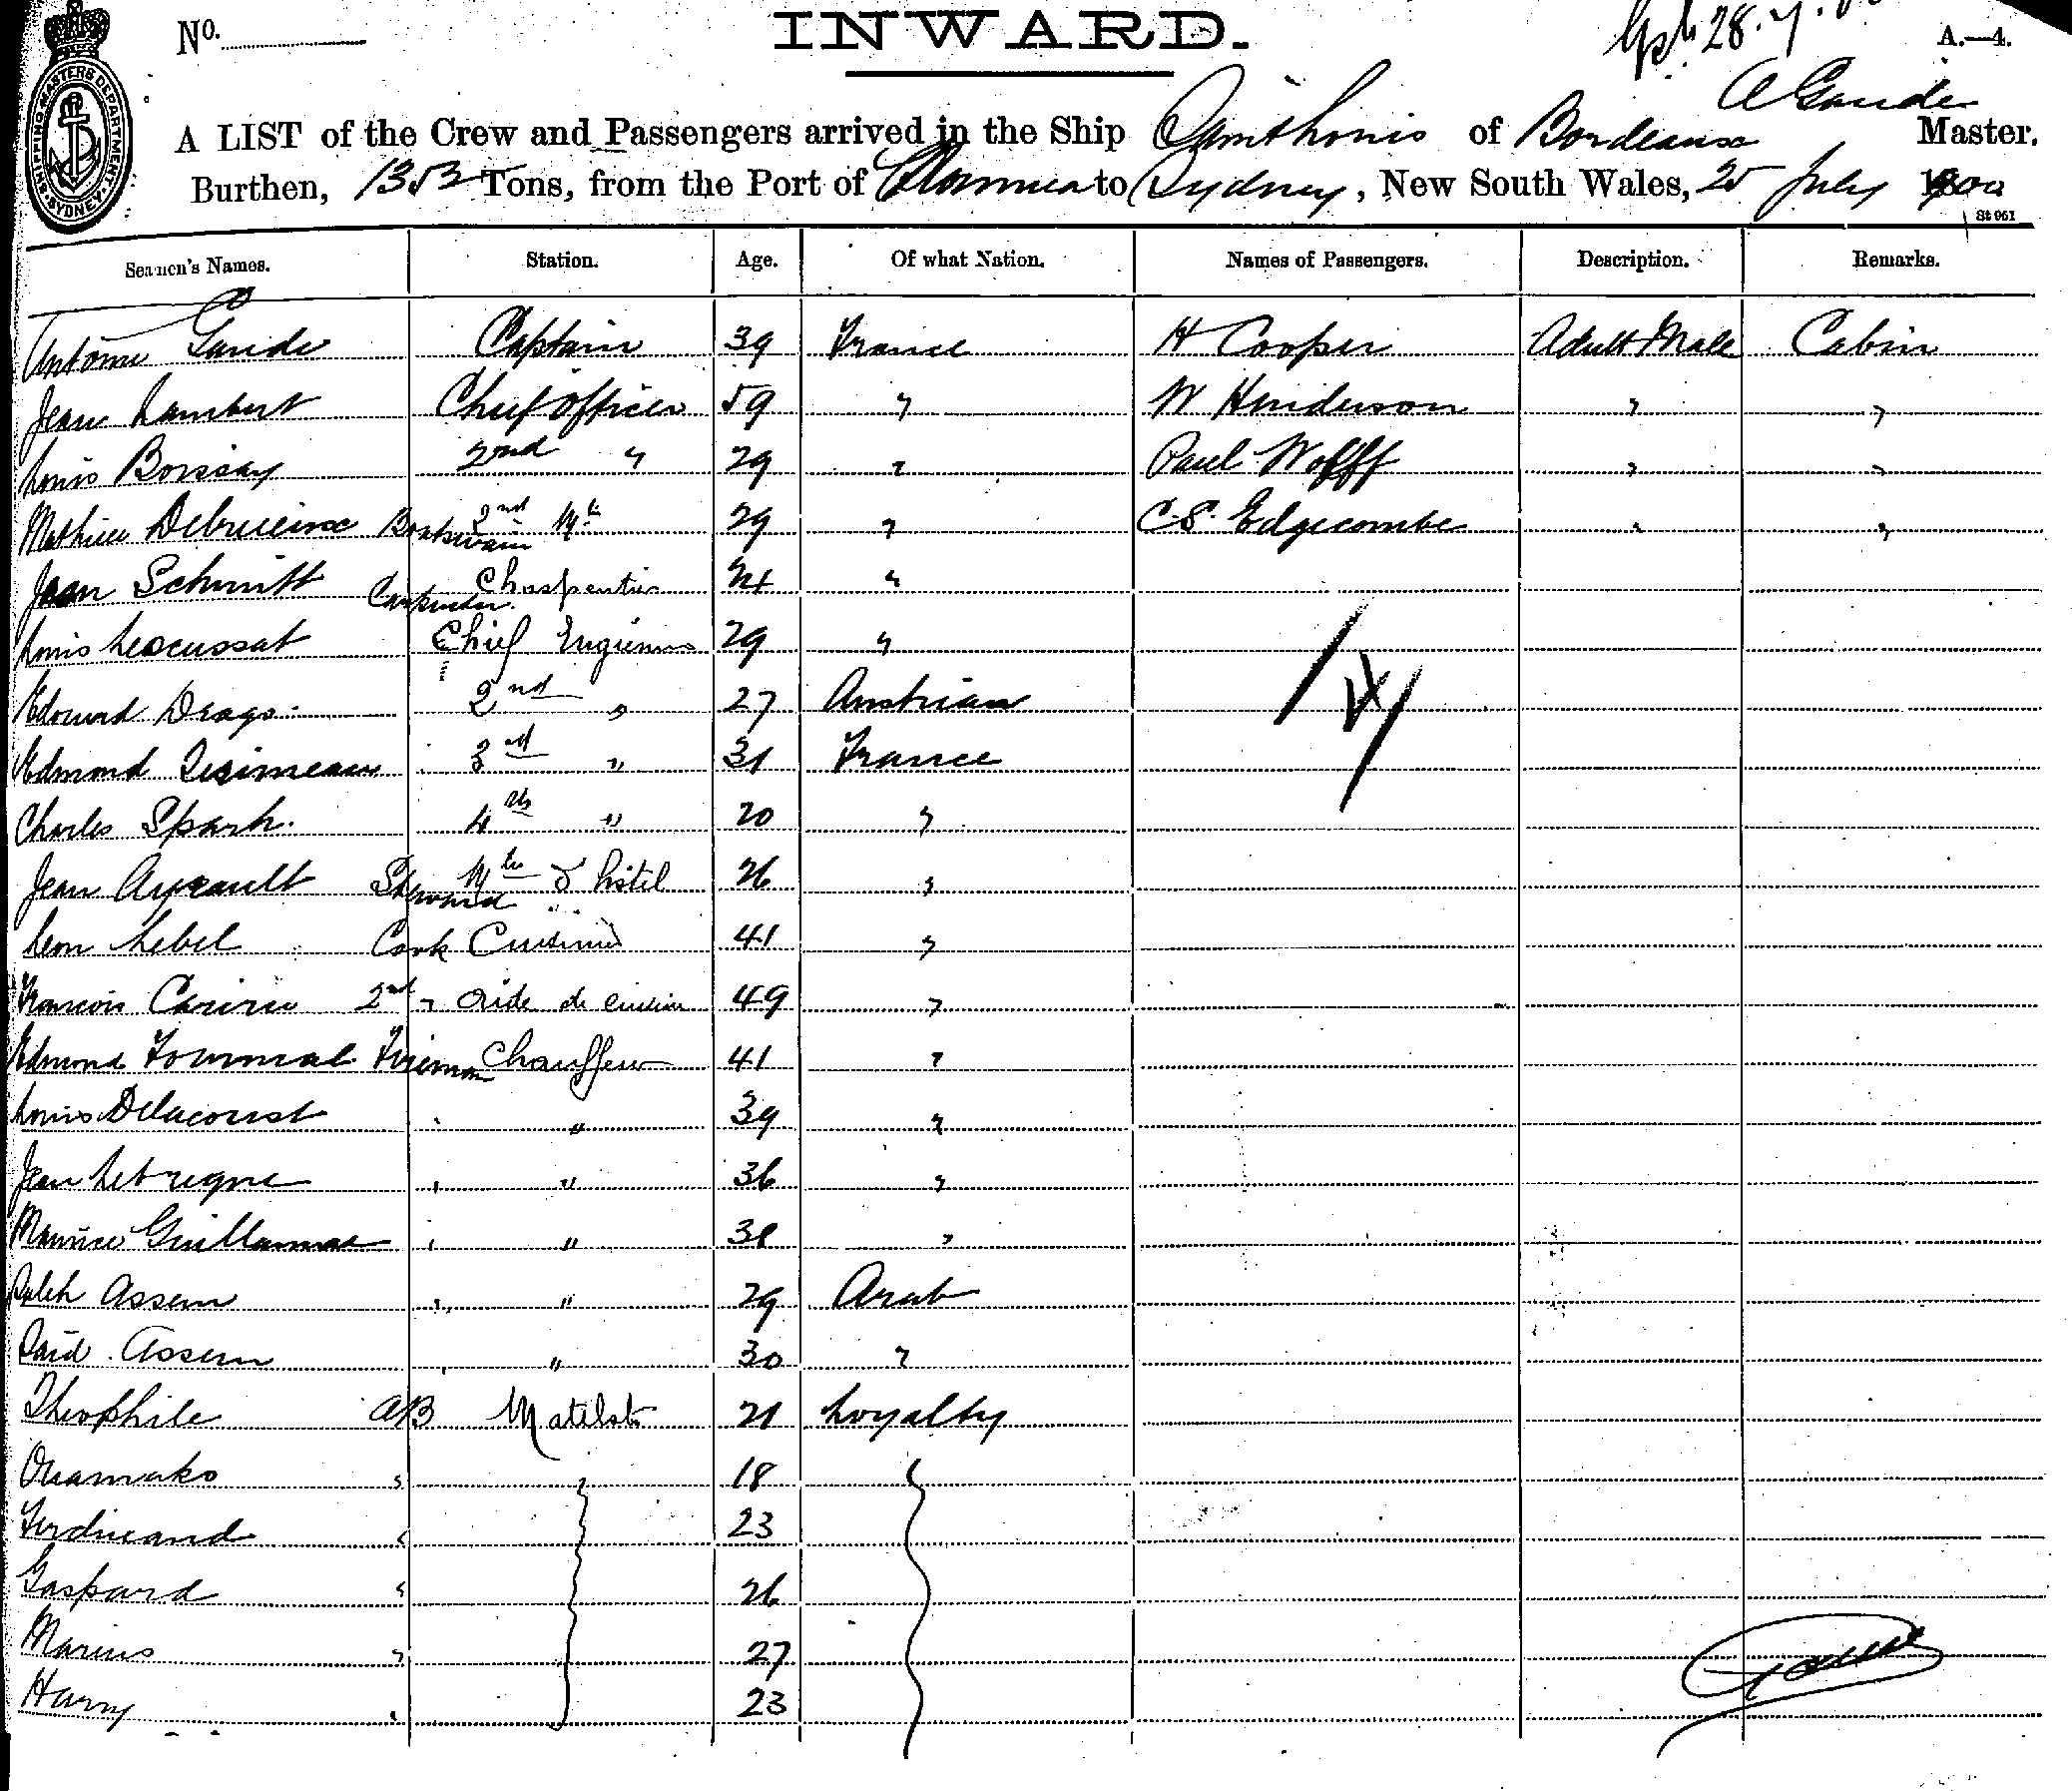 No.
INWARD.
28.7.
A.—4.
SHIPPING MASTERS DEPARTMENT
SYDNEY
A Gaude
A LIST of the Crew and Passengers arrived in the Ship of Bordeaux Master.
Burthen, 1353 Tons, from the Port of Noumea to Sydney, New South Wales, 25 July 1900
St 961
Seamen's Names. Station. Age. Of what Nation. Names of Passengers. Description. Remarks.
Antoine Gaude Captain 39 France H Cooper Adult Male Cabin
Jean Lambert Chief Officer 59 " W Henderson " "
Louis Boissay 2nd " 29 " Paul Wolff " "
Mathieu Boatswain 2nd Mte 29 " C.S. Edgecombe " "
Jean Schmitt Carpenter Charpentier 24 "
Louis Chief Engineer 29 "
Edouard Drago 2nd " 27 Austrian
Edmond 3rd " 31 France
Charles Spark. 4th " 20 "
Jean Ayrault Steward Mtre d'hotel 26 "
Leon Lebel Cook Cuisinier 41 "
Francois 2nd " Aide de cuisine 49 "
Edmond Fireman Chauffeur 41 "
Louis Delacourt " 39 "
Jean " 36 "
Maurice "
Saleh Assem " 29 Arab
Said Assem " 30 "
Theophile AB Matelot 21 Loyalty
Ouamako " 18
Ferdinand " 23
Gaspard " 26
Marius " 27
Harry " 23